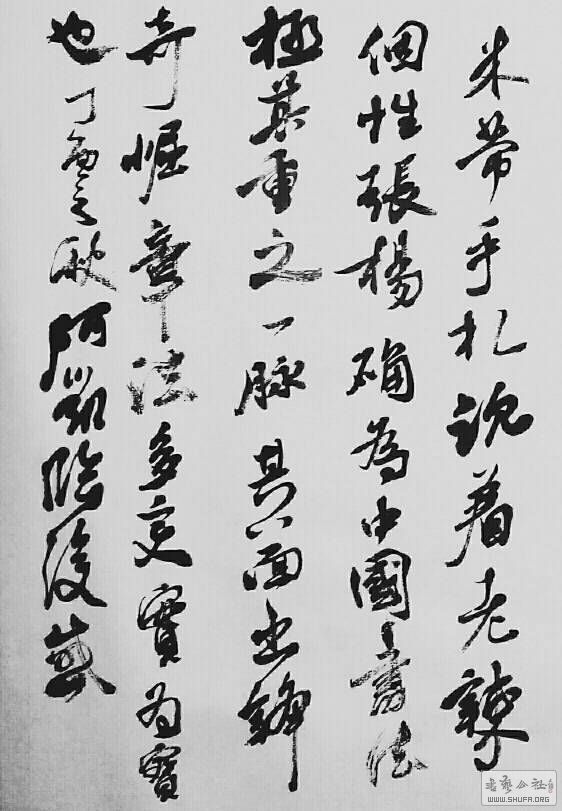 米芾手札沉着老辣
個性張楊確為中國書法
極其重之一脉其八面出鋒
奇崛章法多变實为寶
也丁酉之秋阿凯臨後感
書藝公社
WWW.SHUFA.ORG